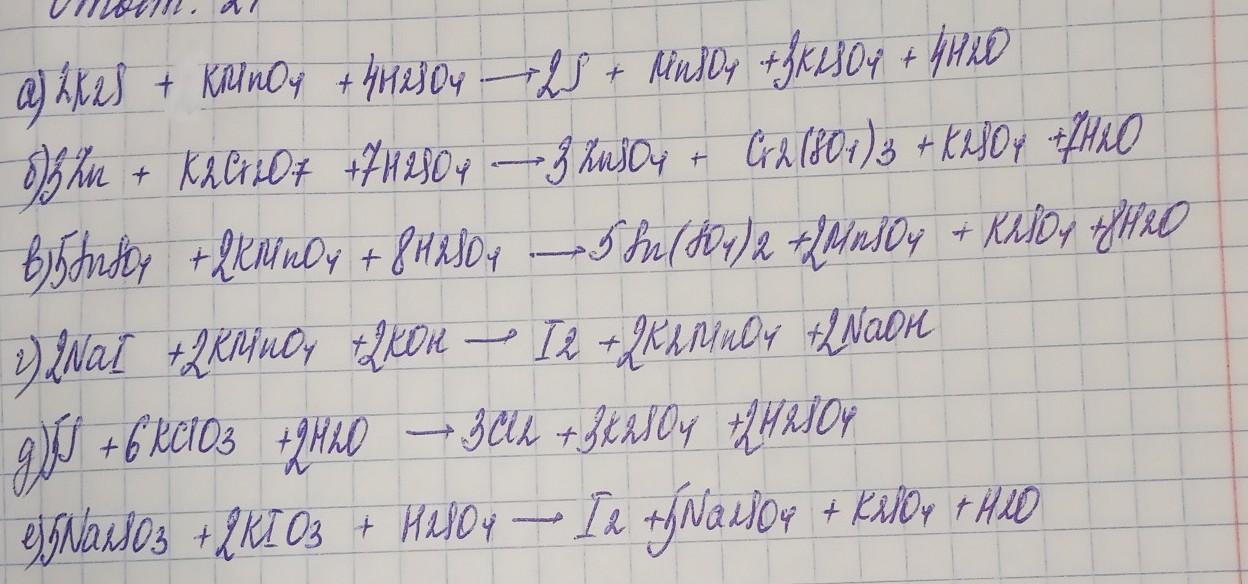 а) 2K2S + KMnO4 + 4H2SO4 → 2S + MnSO4 + 3K2SO4 + 4H2O
б) 3Zn + K2Cr2O7 + 7H2SO4 → 3ZnSO4 + Cr2(SO4)3 + K2SO4 + 7H2O
в) 5SnSO4 + 2KMnO4 + 8H2SO4 → 5Sn(SO4)2 + 2MnSO4 + K2SO4 + 8H2O
г) 2NaI + 2KMnO4 + 2KOH → I2 + 2K2MnO4 + 2NaOH
д) 5S + 6KClO3 + 2H2O → 3Cl2 + 3K2SO4 + 2H2SO4
е) 5Na2SO3 + 2KIO3 + H2SO4 → I2 + 5Na2SO4 + K2SO4 + H2O